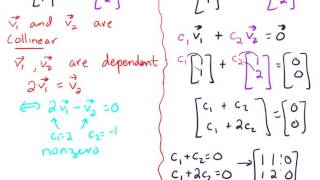 [1] [2]
v⃗₁ and v⃗₂ are
Collinear
⇒ v⃗₁, v⃗₂ are dependent
2v⃗₁ = v⃗₂
⇔ 2v⃗₁ - v⃗₂ = 0
c₁=2 c₂=-1
nonzero
[1] [2]
c₁v⃗₁ + c₂v⃗₂ = 0⃗
c₁[1 1] + c₂[1 2] = [0 0]
[c₁ + c₂
c₁ + 2c₂] = [0 0]
c₁ + c₂ = 0 → [1 1 : 0
c₁ + 2c₂ = 0 1 2 : 0]